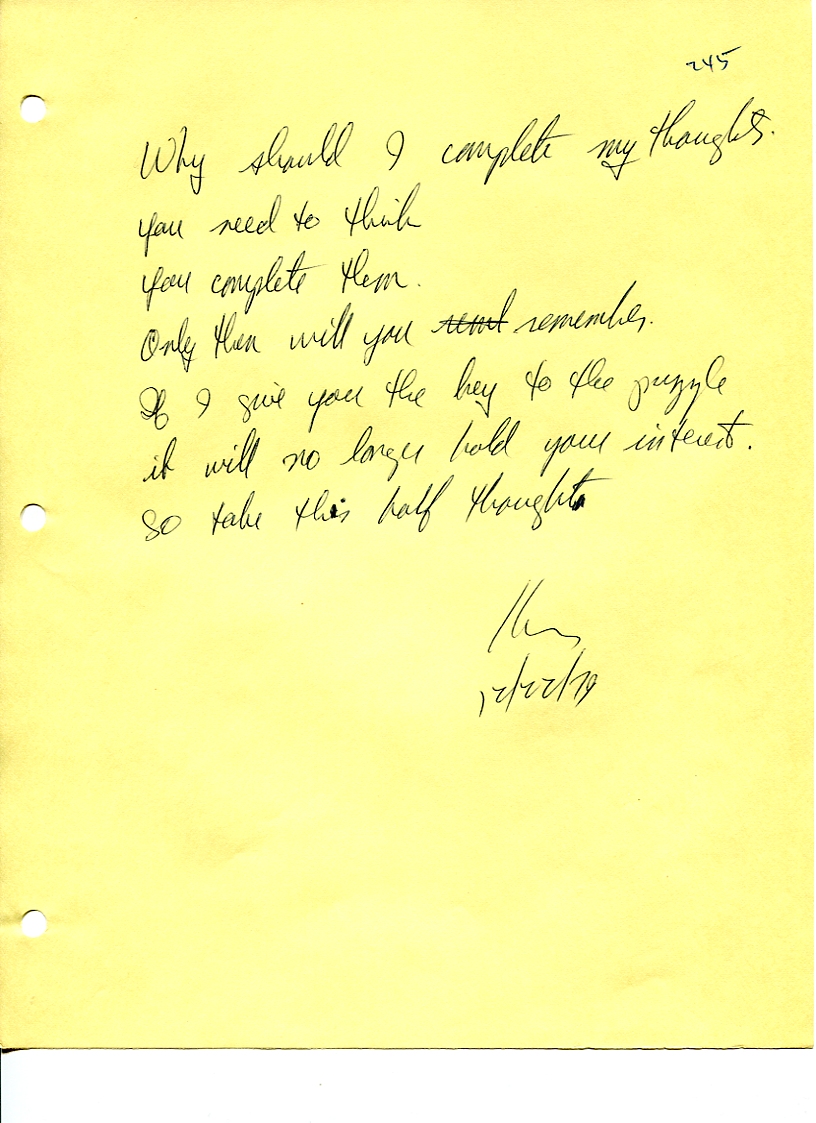 245
Why should I complete my thoughts.
you need to think
you complete them.
Only then will you remember.
If I give you the key to the puzzle
it will no longer hold your interest.
so take this half thought
12/22/79